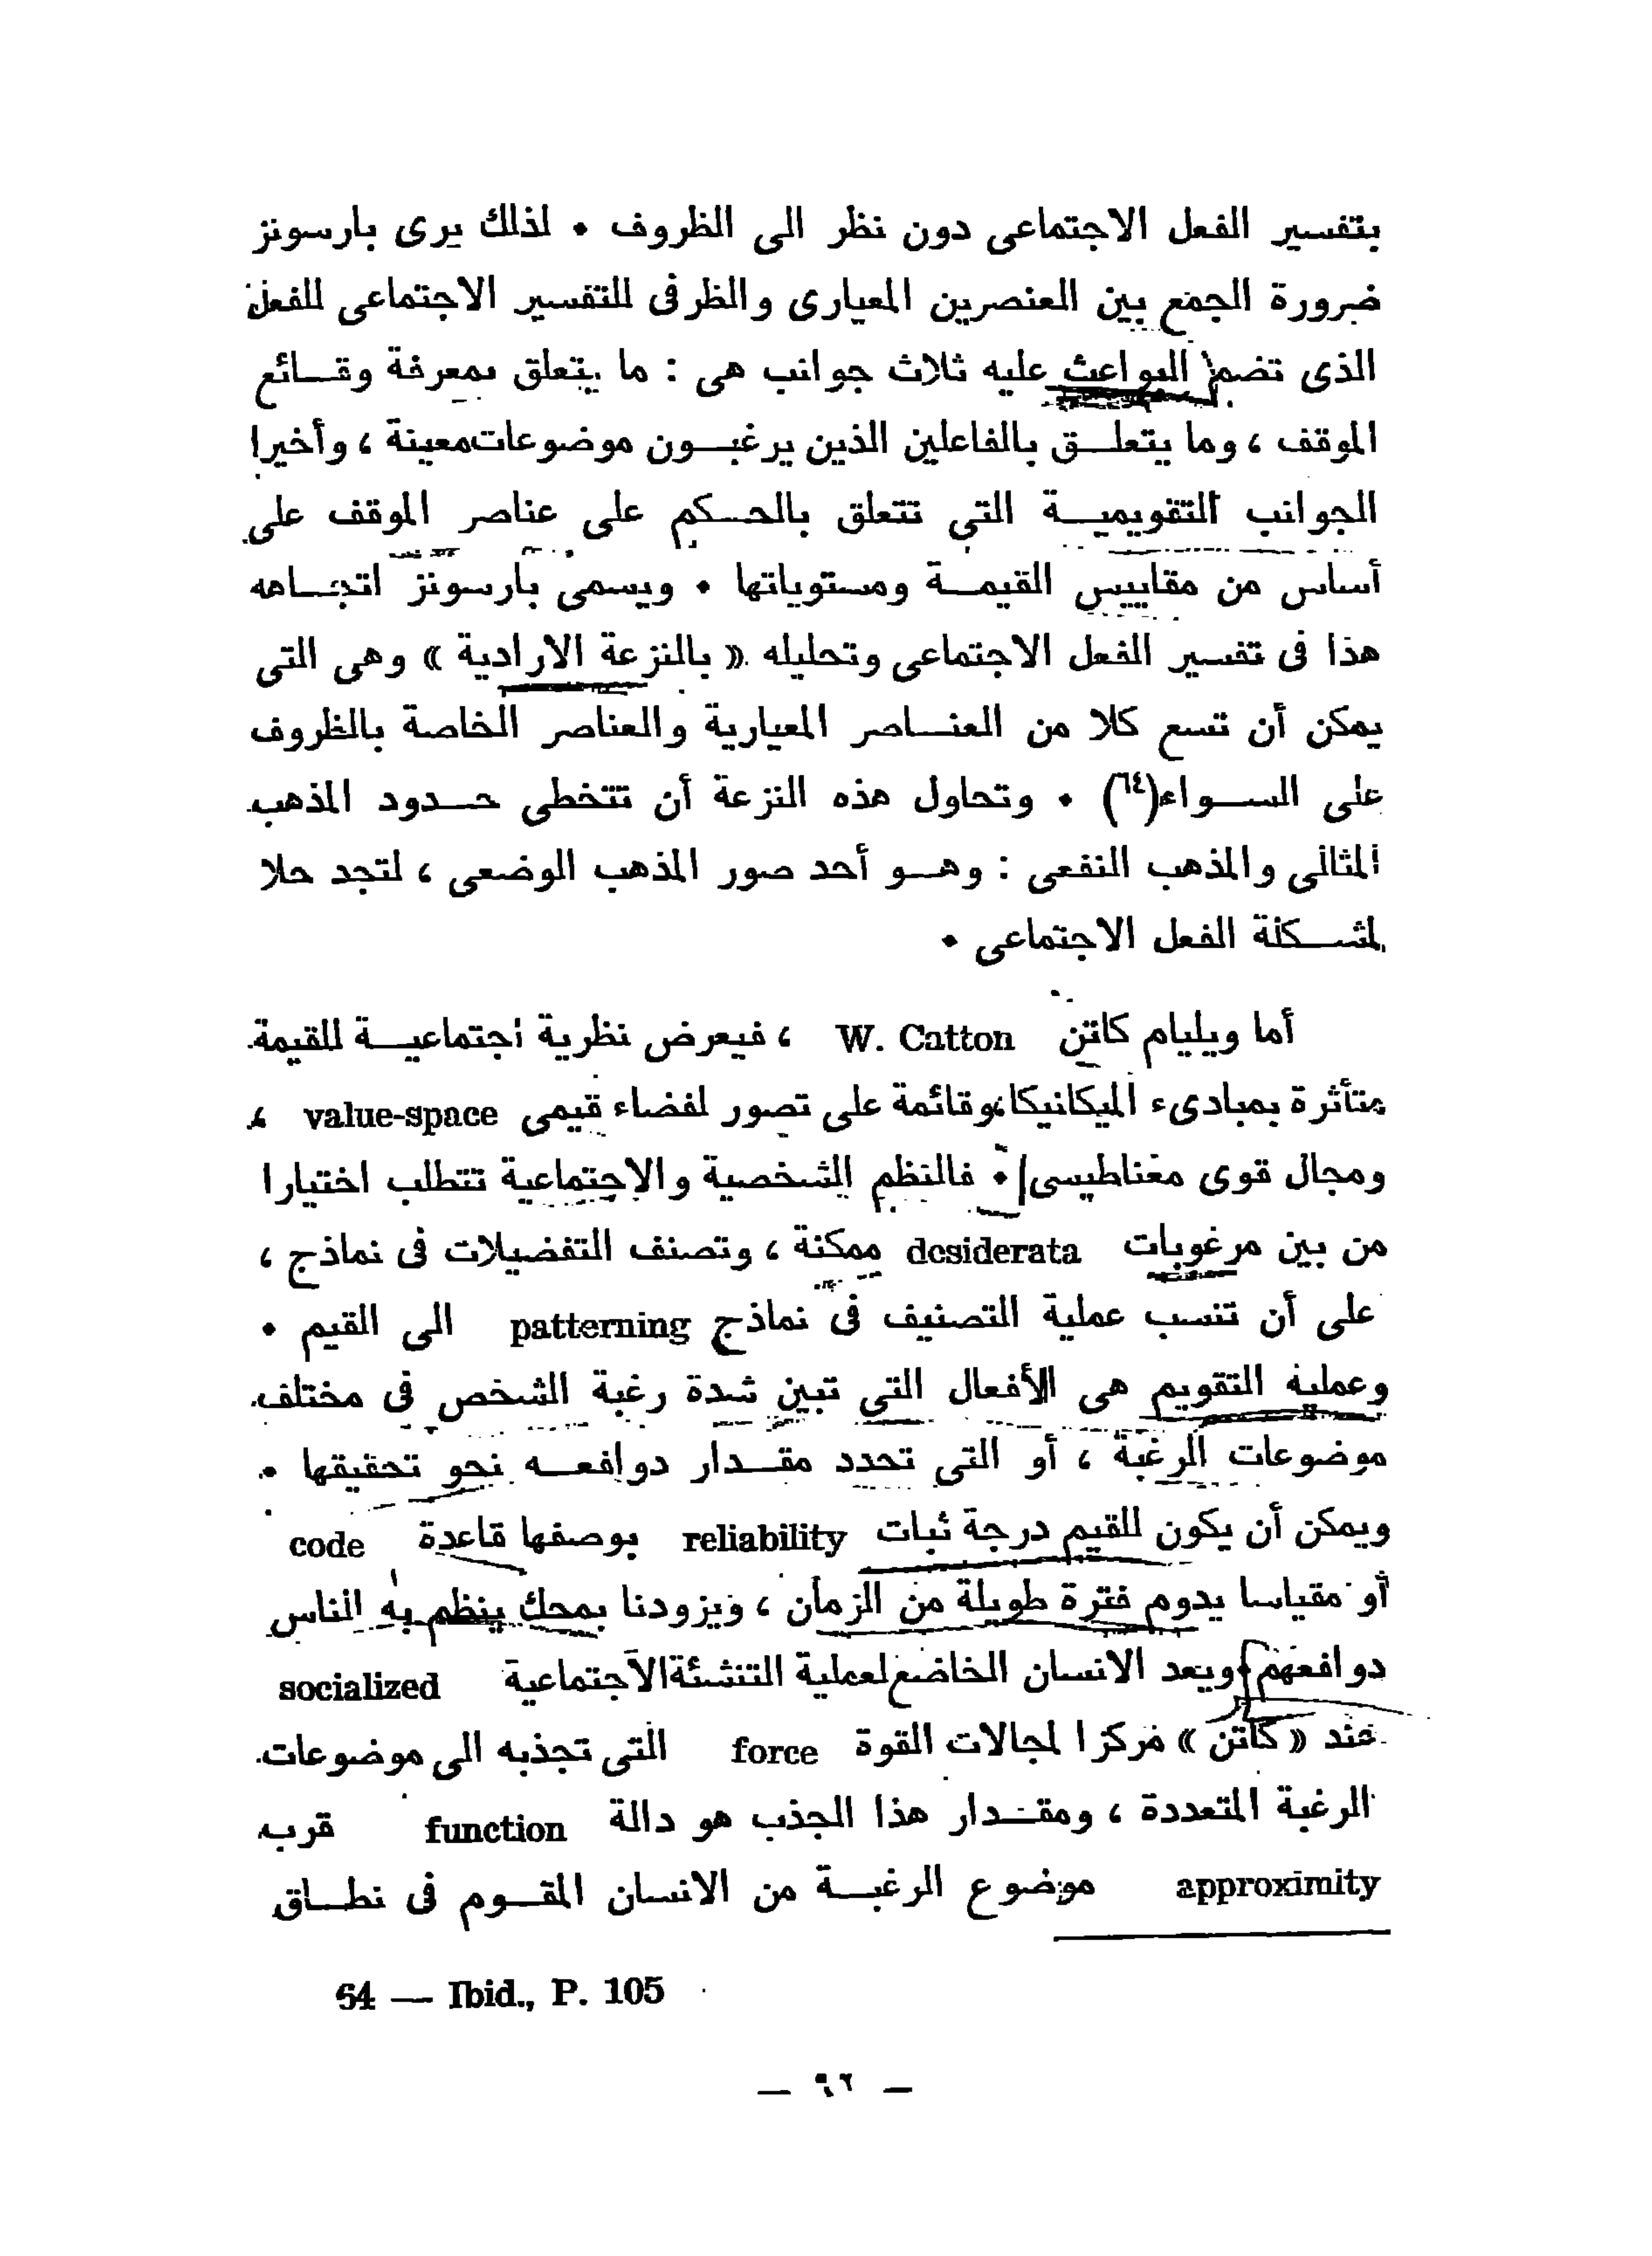 بتفسير الفعل الاجتماعى دون نظر الى الظروف • لذلك يرى بارسونز
ضرورة الجمع بين العنصرين المعيارى والظرفى للتفسير الاجتماعى للفعل
الذى تضم البواعث عليه ثلاث جوانب هى : ما يتعلق بمعرفة وقـــائع
الموقف ، وما يتعلــق بالفاعلين الذين يرغبــون موضوعات معينة ، وأخيرا
الجوانب التقويميــة التى تتعلق بالحــكم على عناصر الموقف على
أساس من مقاييس القيمــة ومستوياتها • ويسمى بارسونز اتجــاهه
هذا فى تفسير الفعل الاجتماعى وتحليله « بالنزعة الارادية » وهى التى
يمكن أن تسع كلا من العنــاصر المعيارية والعناصر الخاصة بالظروف
على الســواء(٦٤) • وتحاول هذه النزعة أن تتخطى حــدود المذهب
المثالى والمذهب النفعى : وهــو أحد صور المذهب الوضعى ، لتجد حلا
لمشــكلة الفعل الاجتماعى •
أما ويليام كاتن W. Catton ، فيعرض نظرية اجتماعيــة للقيمة
متأثرة بمبادىء الميكانيكا وقائمة على تصور لفضاء قيمى value-space ،
ومجال قوى مغناطيسى • فالنظم الشخصية والاجتماعية تتطلب اختيارا
من بين مرغوبات desiderata ممكنة ، وتصنف التفضيلات فى نماذج ،
على أن تنسب عملية التصنيف فى نماذج patterning الى القيم •
وعملية التقويم هى الأفعال التى تبين شدة رغبة الشخص فى مختلف
موضوعات الرغبة ، أو التى تحدد مقــدار دوافعــه نحو تحقيقها •
ويمكن أن يكون للقيم درجة ثبات reliability بوصفها قاعدة code
أو مقياسا يدوم فترة طويلة من الزمان ، ويزودنا بمحك ينظم به الناس
دوافعهم • ويعد الانسان الخاضع لعملية التنشئة الاجتماعية socialized
عند « كاتن » مركزا لمجالات القوة force التى تجذبه الى موضوعات
الرغبة المتعددة ، ومقــدار هذا الجذب هو دالة function قرب
approximity موضوع الرغبــة من الانسان المقــوم فى نطــاق
64 — Ibid., P. 105
— ٩٢ —